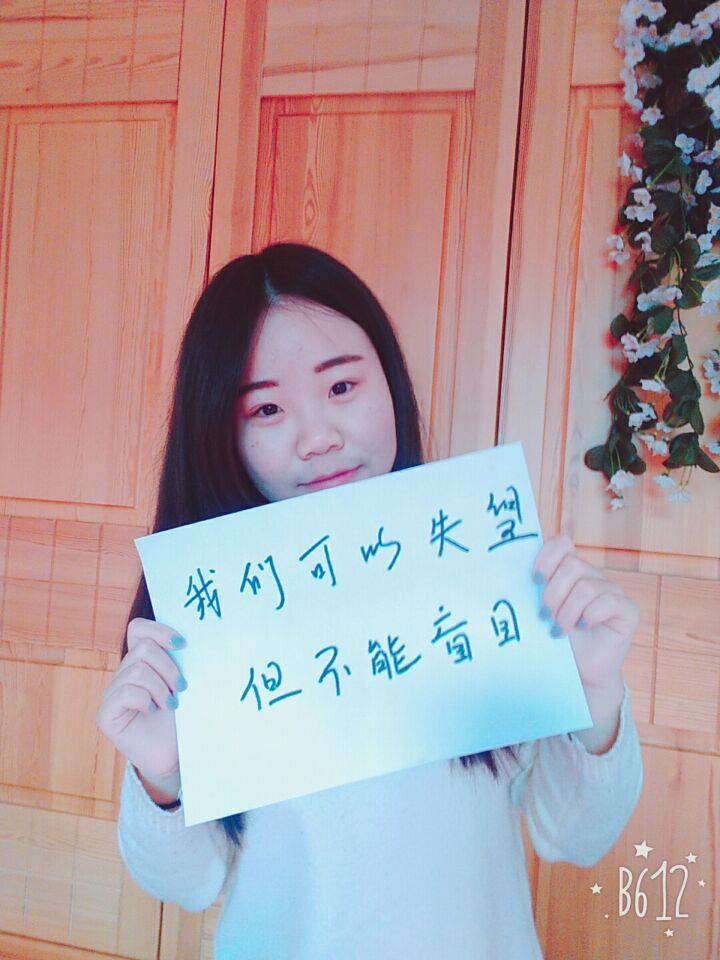 我们可以失望
但不能盲目
B612